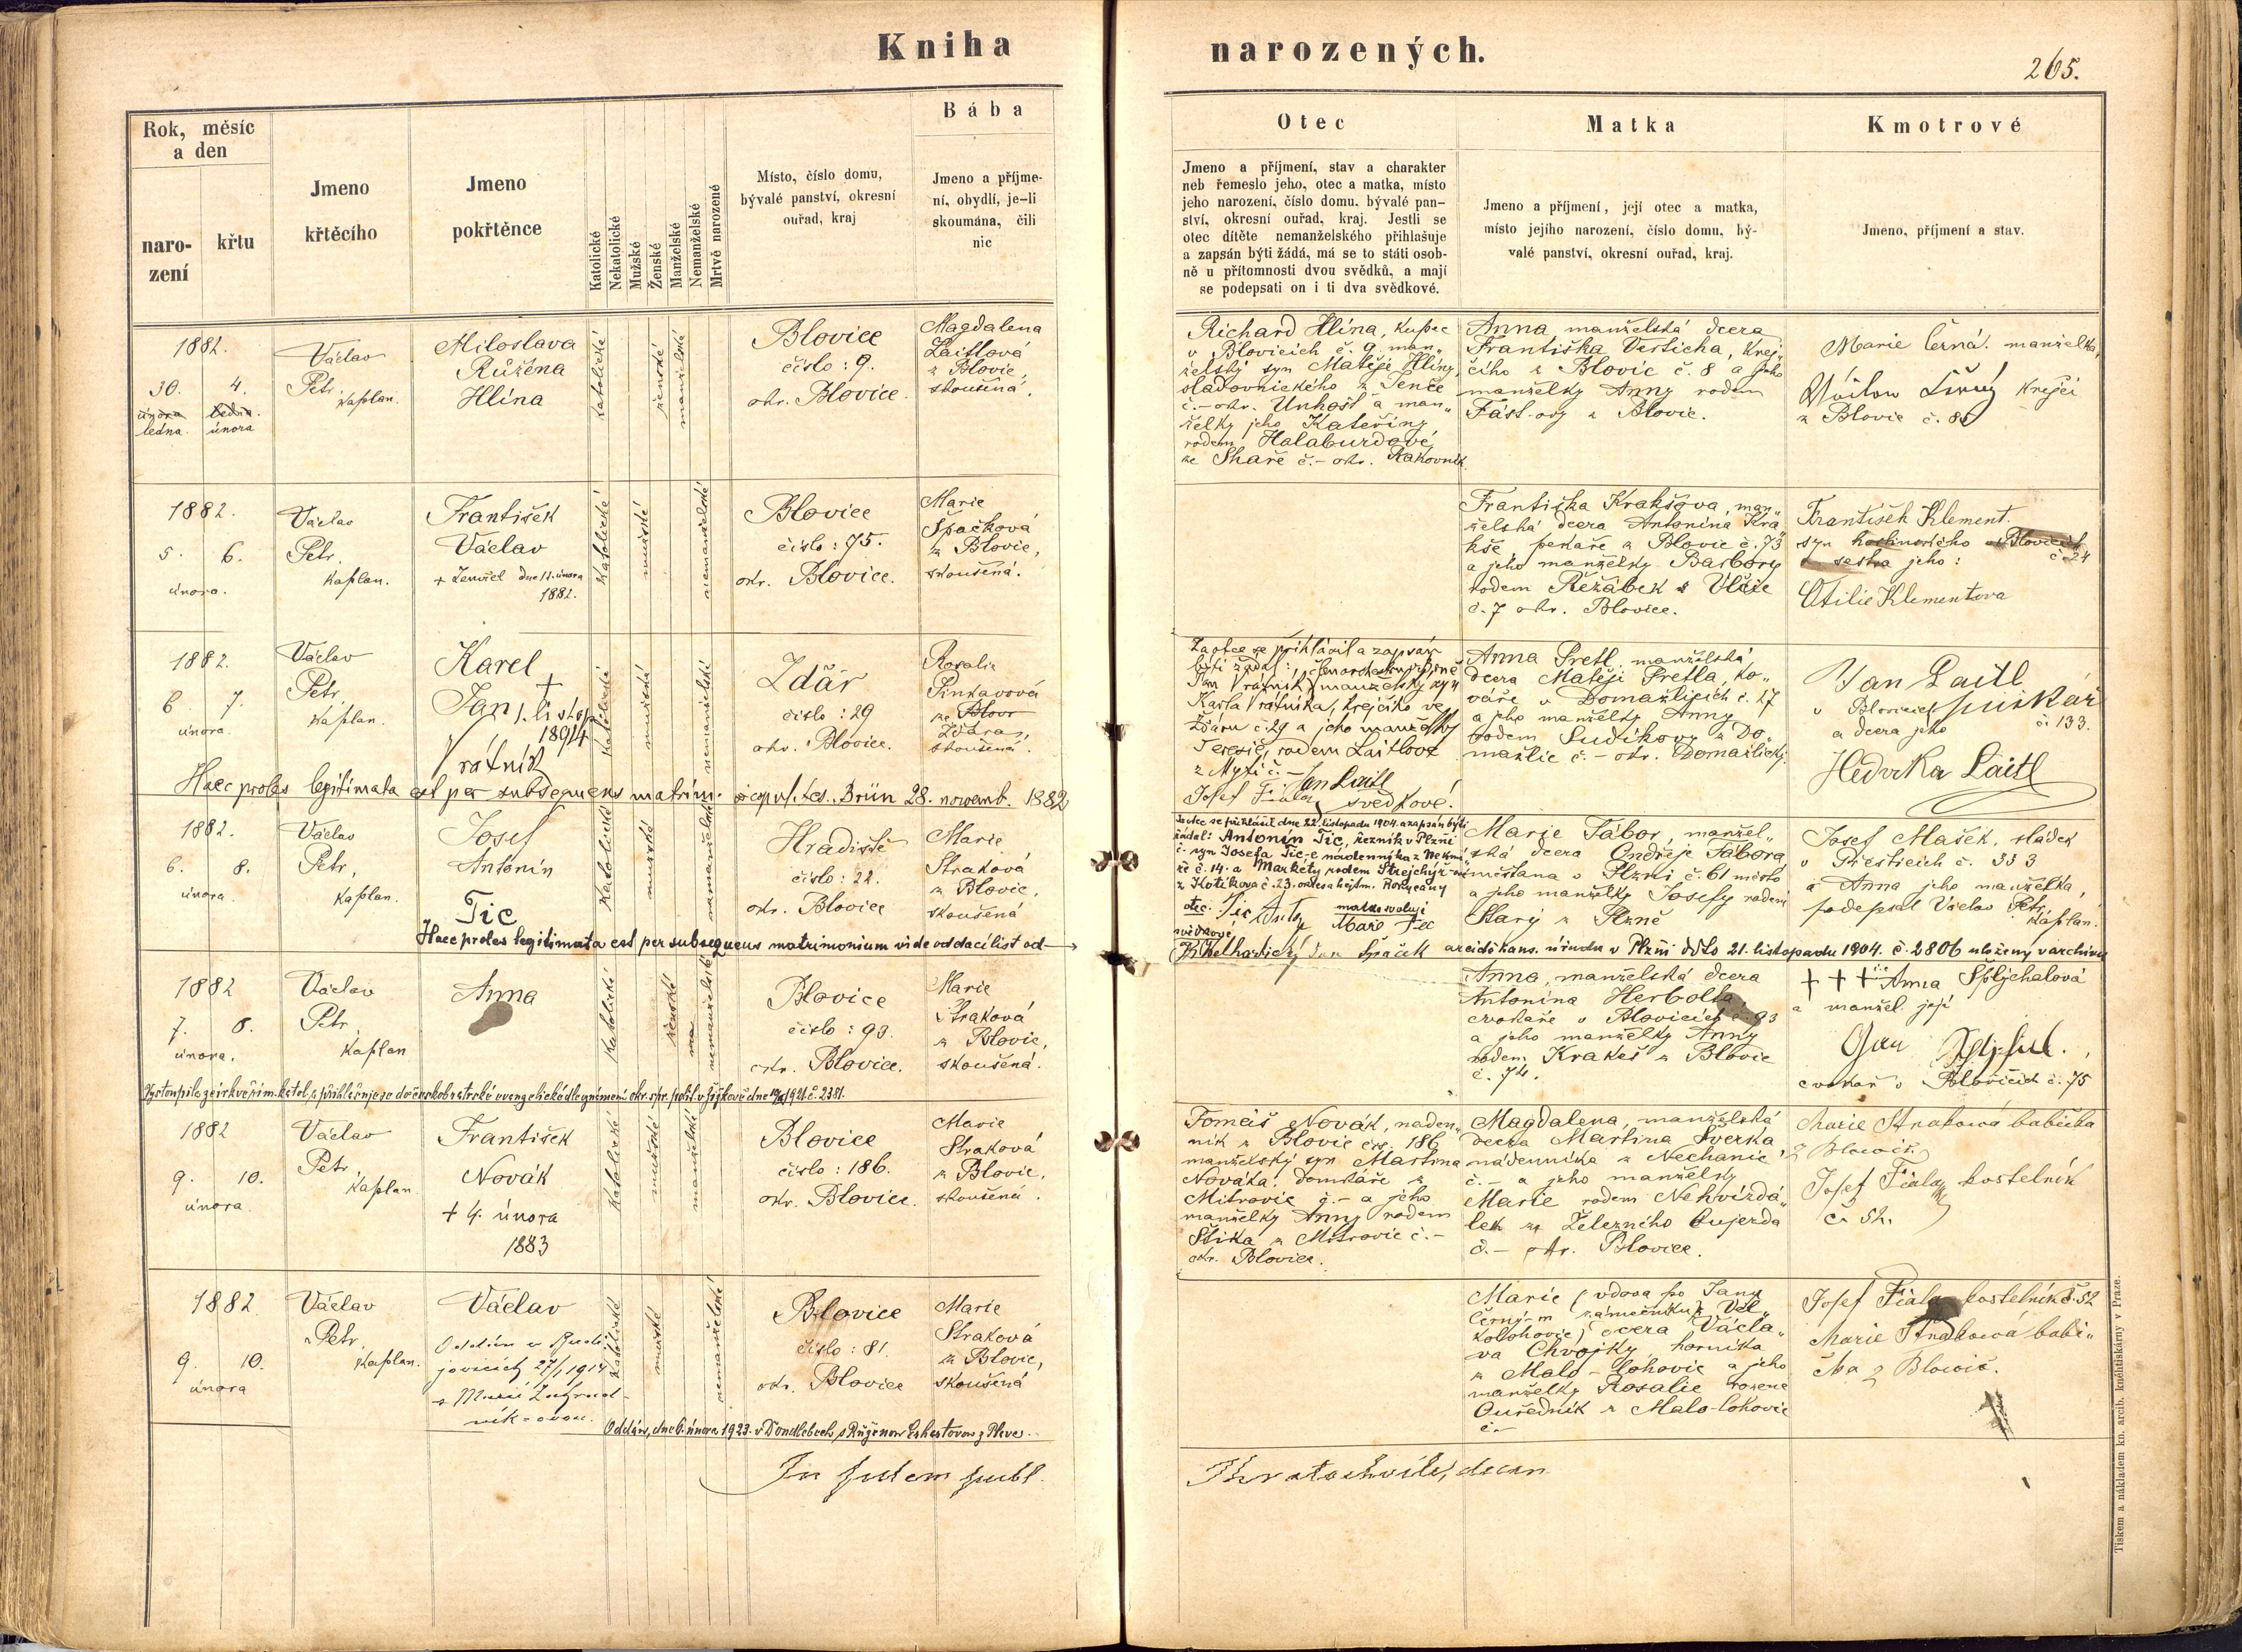 Kniha
narozených.
265.
Rok, měsíc
a den
naro-
zení
křtu
Jmeno
křtěcího
Jmeno
pokřtěnce
Katolické
Nekatolické
Mužské
Ženské
Manželské
Nemanželské
Mrtvě narozené
Místo, číslo domu,
bývalé panství, okresní
ouřad, kraj
Bába
Jmeno a příjme-
ní, obydlí, je-li
skoumána, čili
nic
Otec
Jmeno a příjmení, stav a charakter
neb řemeslo jeho, otec a matka, místo
jeho narození, číslo domu, bývalé pan-
ství, okresní ouřad, kraj. Jestli se
otec dítěte nemanželského přihlašuje
a zapsán býti žádá, má se to státi osob-
ně u přítomnosti dvou svědků, a mají
se podepsati on i ti dva svědkové.
Matka
Jmeno a příjmení, její otec a matka,
místo jejího narození, číslo domu, bý-
valé panství, okresní ouřad, kraj.
Kmotrové
Jmeno, příjmení a stav.
1882.
30. 4.
února ledna.
ledna února
Václav
Petr,
kaplan.
Miloslava
Růžena
Hlína
katolické
ženské
manželské
Blovice
číslo: 9.
okr. Blovice.
Magdalena
Laitlová
z Blovic,
skoušená.
Richard Hlína, kupec
v Blovicích č. 9. man„
želský syn Matěje Hlíny,
sladovnického z Jenče
č.- okr. Unhošť a man„
želky jeho Kateřiny
rodem Halaburdové
ze Skaře č.- okr. Rakovník
Anna, manželská dcera
Františka Vesticha, krej„
čího z Blovic č. 8 a jeho
manželky Anny rodem
Fást-ový z Blovic.
Marie Černá. manželka,
Václav Černý krejčí
z Blovic č. 80
1882.
5. 6.
února.
Václav
Petr,
kaplan.
František
Václav
+ Zemřel dne 11. února
1882.
katolické
mužské
nemanželské
Blovice
číslo: 75.
okr. Blovice.
Marie
Špačková
z Blovic,
skoušená.
Františka Krakšova, man„
želská dcera Antonína Kra
kše, pekaře z Blovic č. 73
a jeho manželky Barbory
rodem Řežábek z Vlčic
č. 7 okr. Blovice.
František Klement.
syn hostinského v Blovicích
a sestra jeho: č. 24
Otilie Klementova
1882.
6 7.
února.
Václav
Petr,
kaplan.
Karel
Jan + 1. listop.
1894
Vrátník
katolické
mužské
nemanželské
Ždář
číslo: 29
okr. Blovice.
Rosalie
Pinkavová
ze Blovic
Ždára,
skoušená.
Haec proles legitimata est per subsequens matrim. copul. tes. Brün 28. novemb. 1882
Za otce se přihlásil a zapsán
býti žádal:
Jan Vrátník, manželský syn
Karla Vrátníka, krejčího ve
Ždáru č. 29 a jeho manželky
Terezie, rodem Laitlové
z Mytí č. -
Jan Laitl
Josef Fiala, svědkové.
Anna Pretl, manželská
dcera Matěje Pretla, ko„
váře v Domažlicích č. 17
a jeho manželky Anny
rodem Sudíkovy z Do„
mažlic č. - okr. Domažlický.
Jan Laitl
v Blovicích puškař
a dcera jeho č. 133.
Hedvika Laitl
1882.
6. 8.
února.
Václav
Petr,
kaplan.
Josef
Antonín
Tic
katolické
mužské
nemanželské
Hradiště
číslo: 22.
okr. Blovice
Marie
Straková
z Blovic,
skoušená
Haec proles legitimata est per subsequens matrimonium vide oddací list od
Za otce se přihlásil dne 22. listopadu 1904. a zapsán býti
žádal: Antonín Tic, řezník v Plzni
č. syn Josefa Tic-e nádenníka z Nekmí„
ře č. 14. a Markéty rodem Strejchýř-ovy
z Kotíkova č. 23. okres a hejtm. Rokycany
otec: Tic Antoy matka svoluje
svědkové Marie Tec
Jan Špaček
arcidĕkans. úřadu v Plzni ddto 21. listopadu 1904. č. 2806 uložený v archivu
Marie Tábor, manžel„
ská dcera Ondřeje Tábora,
měšťana v Plzni č. 61 město
a jeho manželky Josefy rodem
Starý z Plzně
Josef Mašek, sládek
v Přesticích č. 353
a Anna jeho manželka,
podepsal Václav Petr,
kaplan.
1882
7. 8.
února.
Václav
Petr,
kaplan
Anna
katolické
ženské
ma
nemanželské
Blovice
číslo: 93.
okr. Blovice.
Marie
Straková
z Blovic,
skoušená.
Vystoupila ze církve řím. katol. a přihlašuje se do českobratrské evangelické dle oznámení okr. spr. polit. v Žižkově dne 1921 č. 2381.
Anna, manželská dcera
Antonína Herbolta
cvokaře v Blovicích č. 93
a jeho manželky Anny
rodem Krakeš z Blovic
č. 74.
+ + + Anna Šplýchalová
a manžel její
Jan
cvokař v Blovicích č. 75
1882
9. 10.
února
Václav
Petr,
kaplan
František
Novák
+ 4. února
1883
katolické
mužské
manželské
Blovice
číslo: 186.
okr. Blovice.
Marie
Straková
z Blovic,
skoušená.
Tomáš Novák, náden„
ník z Blovic čís. 186
manželský syn Martina
Nováka, domkáře z
Mitrovic č. - a jeho
manželky Anny rodem
Šlika z Mitrovic č. -
okr. Blovice.
Magdalena, manželská
dcera Martina Sverka
nádenníka z Nechanic
č. - a jeho manželky
Marie rodem Nehvízdá„
lek ze Železného Oujezda
č. - okr. Blovice.
Marie Strakowá babička
z Blowic
Josef Fiala kostelník
č. 52.
1882
9. 10.
února
Václav
Petr,
kaplan.
Václav
Oddán v Budě
jovicích 27/1 1914
s Marií Zagrad-
ník-ovou.
katolické
mužské
nemanželské
Blovice
číslo: 81.
okr. Blovice
Marie
Straková
z Blovic,
skoušená
Oddán, dne 6. února 1923. v Doudlebech s Růženou Eshestovou z Pleve.
Marie (vdova po Janu
Černý-m zámečníku z Vel„
kolohovic) dcera Václa„
va Chvojky, horníka
z Malo-lohovic a jeho
manželky Rosalie rozené
Ouředník z Malo-lohovic
č. -
Josef Fiala kostelník č. 52
Marie Strakowá babi„
čka z Blowic.
In fidem publ.
decan
Tiskem a nákladem kn. arcib. knihtiskárny v Praze.